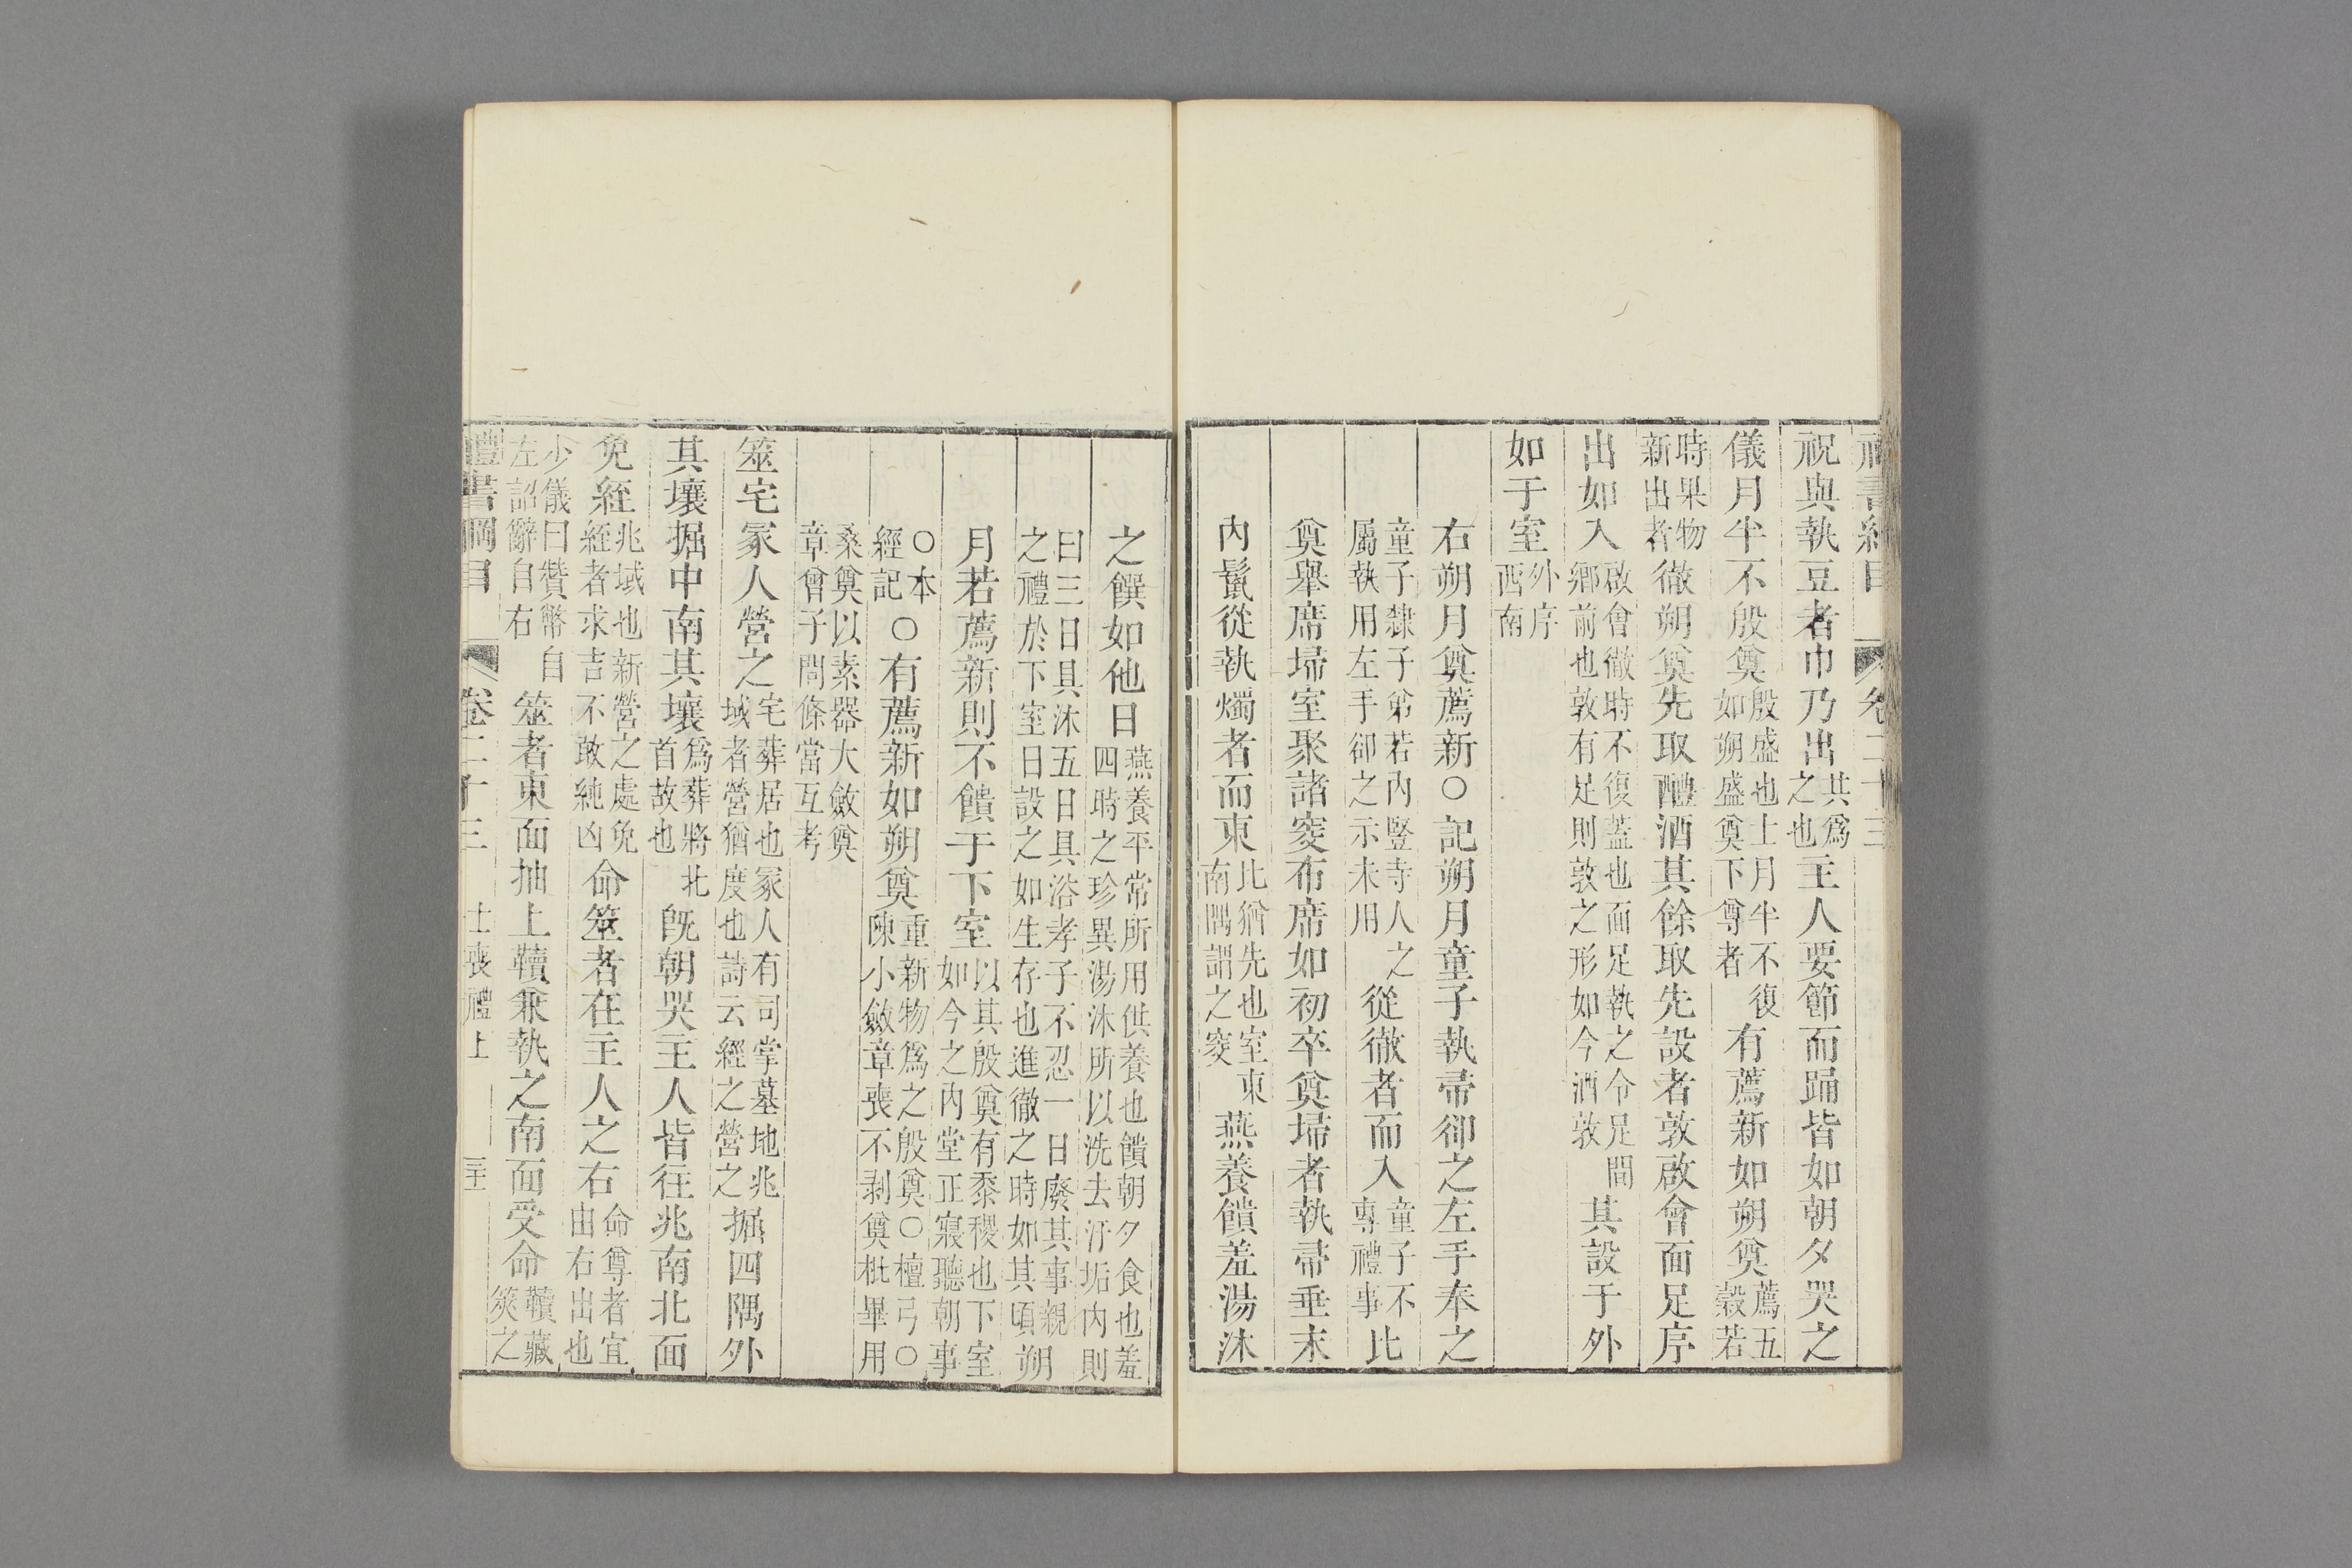 禮書綱目 卷二十三
祝與執豆者巾乃出其爲之也主人要節而踊皆如朝夕哭之
儀月半不殷奠殷盛也士月半不復如朔盛奠下尊者有薦新如朔奠薦五穀若
時果物新出者徹朔奠先取醴酒其餘取先設者敦啟會面足序
出如入啟會徹時不復蓋也面足執之令足間鄉前也敦有足則敦之形如今酒敦其設于外
如于室外序西南
右朔月奠薦新○記朔月童子執帚卻之左手奉之
童子隸子弟若內豎寺人之屬執用左手卻之示未用從徹者而入童子不專禮事比
奠舉席埽室聚諸窔布席如初卒奠埽者執帚垂末
內鬣從執燭者而東比猶先也室東南隅謂之窔燕養饋羞湯沐
之饌如他日燕養平常所用供養也饋朝夕食也羞四時之珍異湯沐所以洗去汙垢內則
曰三日具沐五日具浴孝子不忍一日廢其事親之禮於下室日設之如生存也進徹之時如其頃朔
月若薦新則不饋于下室以其殷奠有黍稷也下室如今之內堂正寢聽朝事
○本經記○有薦新如朔奠重新物爲之殷奠○檀弓○陳小斂章喪不剥奠枇畢用
桑奠以素器大斂奠章曾子問條當互考
筮宅冢人營之宅葬居也冢人有司掌墓地兆域者營猶度也詩云經之營之掘四隅外
其壤掘中南其壤爲葬將北首故也旣朝哭主人皆往兆南北面
免絰兆域也新營之處免絰者求吉不敢純凶命筮者在主人之右命尊者宜由右出也
少儀曰贊幣自左詔辭自右筮者東面抽上韇兼執之南面受命韇藏筴之
禮書綱目 卷二十三 士喪禮上